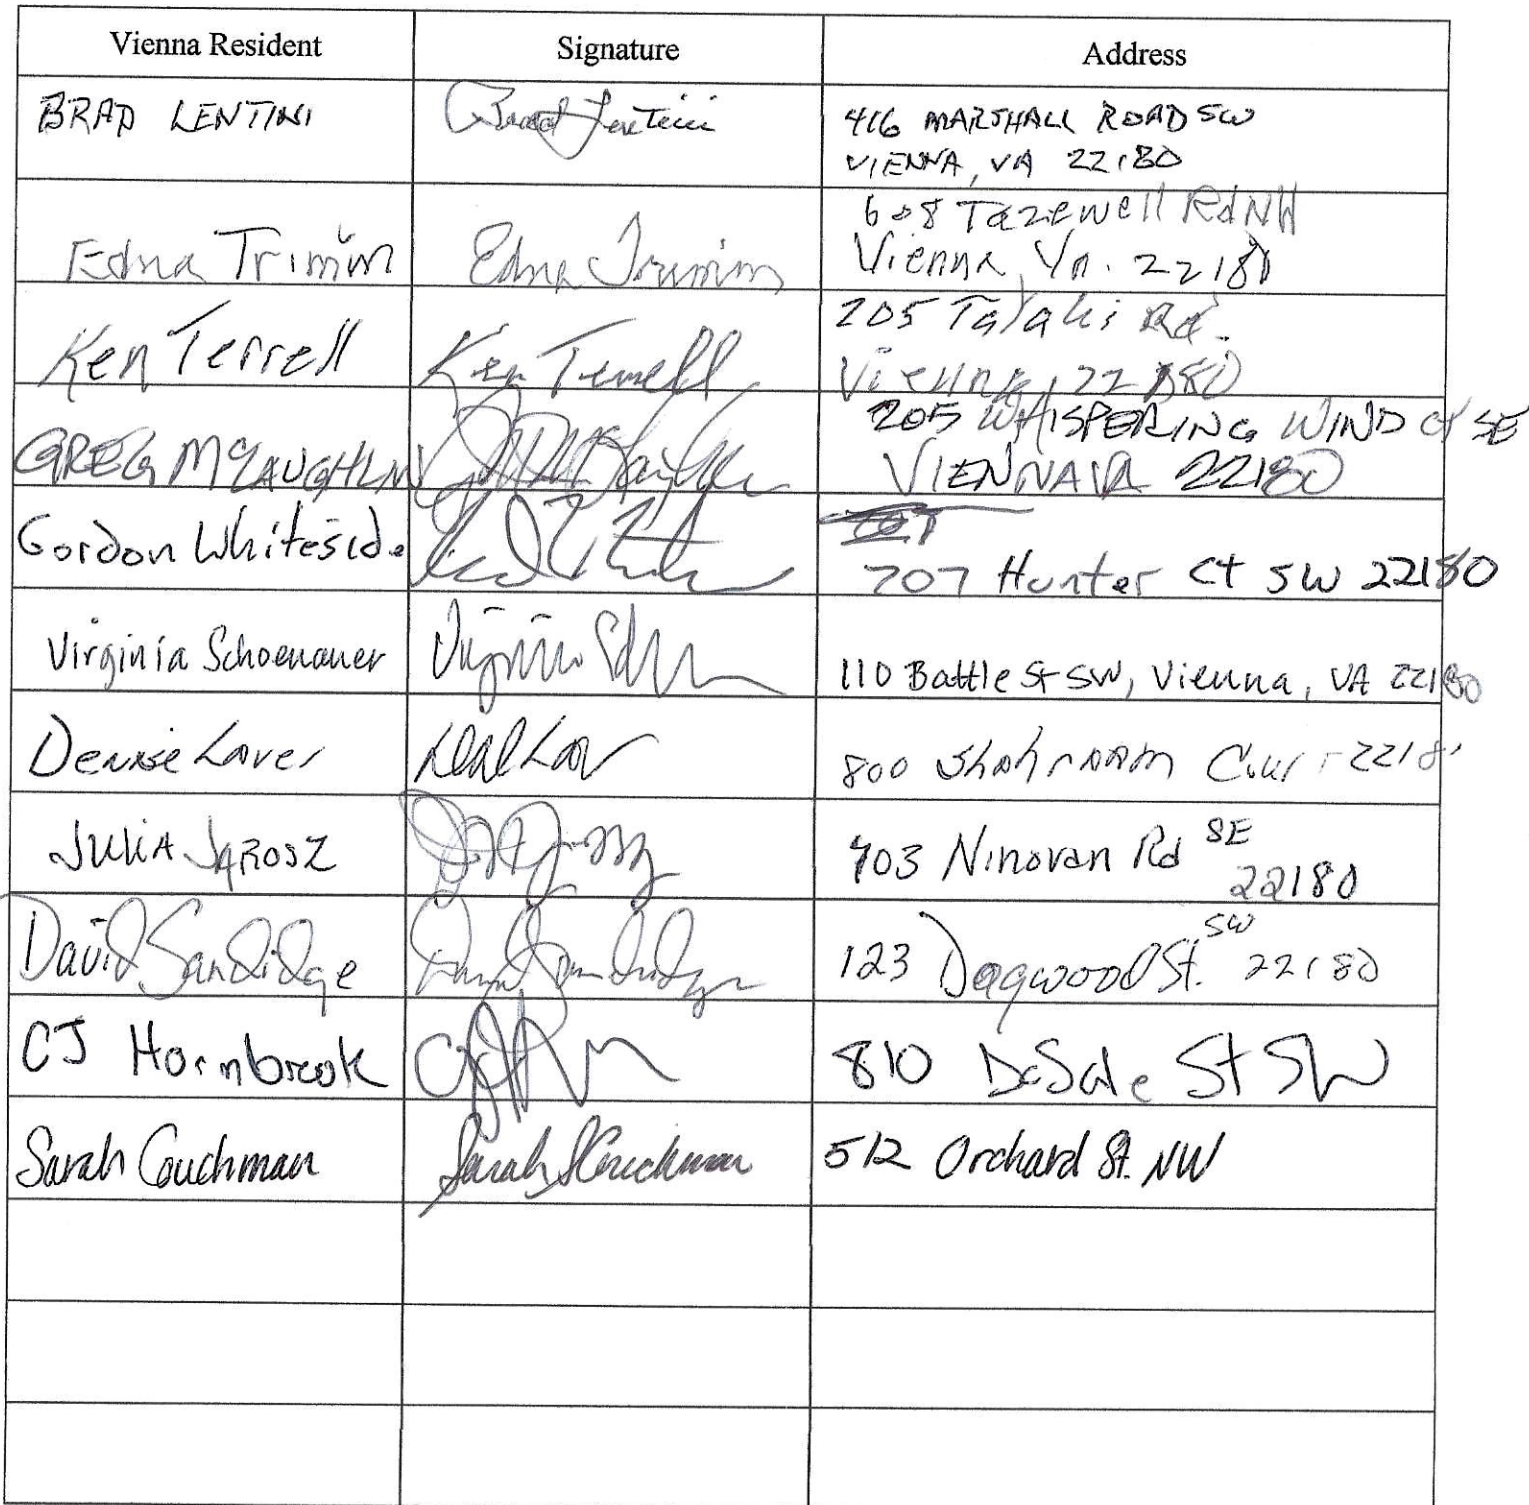 Vienna Resident Signature Address
BRAD LENTINI Brad Lentini 416 MARSHALL ROAD SW
VIENNA, VA 22180
608 Tazewell Rd NW
Edna Trimm Edna Trimm Vienna, Va. 22180
205 Rd.
Ken Terrell Ken Terrell Vienna, 22180
205 WHISPERING WIND Ct SE
GREG MCLAUGHLIN VIENNA VA 22180
Gordon Whiteside
707 Hunter Ct SW 22180
Virginia Schoenauer 110 Battle St SW, Vienna, VA 22180
Denise Laver 800 22180
JULIA JAROSZ 403 Ninovan Rd SE
22180
David Sandidge David Sandidge 123 Dogwood St. SW 22180
CJ Hornbrook 810 DeSale St SW
Sarah Couchman Sarah S Couchman 512 Orchard St. NW